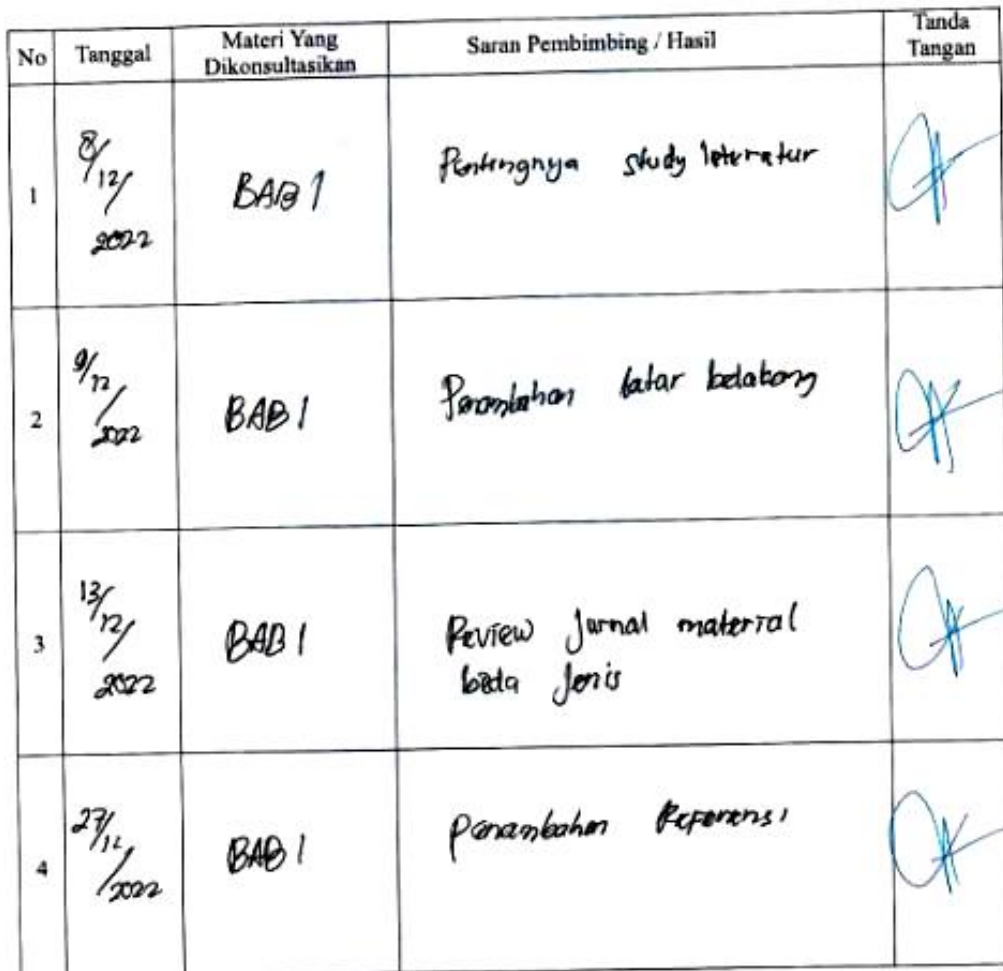 No Tanggal Materi Yang Dikonsultasikan Saran Pembimbing / Hasil Tanda Tangan
1 8/12/2022 BAB 1 Pentingnya study leteratur
2 9/12/2022 BAB 1 Penambahan latar belakang
3 13/12/2022 BAB 1 Review Jurnal material
beda Jenis
4 27/12/2022 BAB 1 Penambahan Referensi